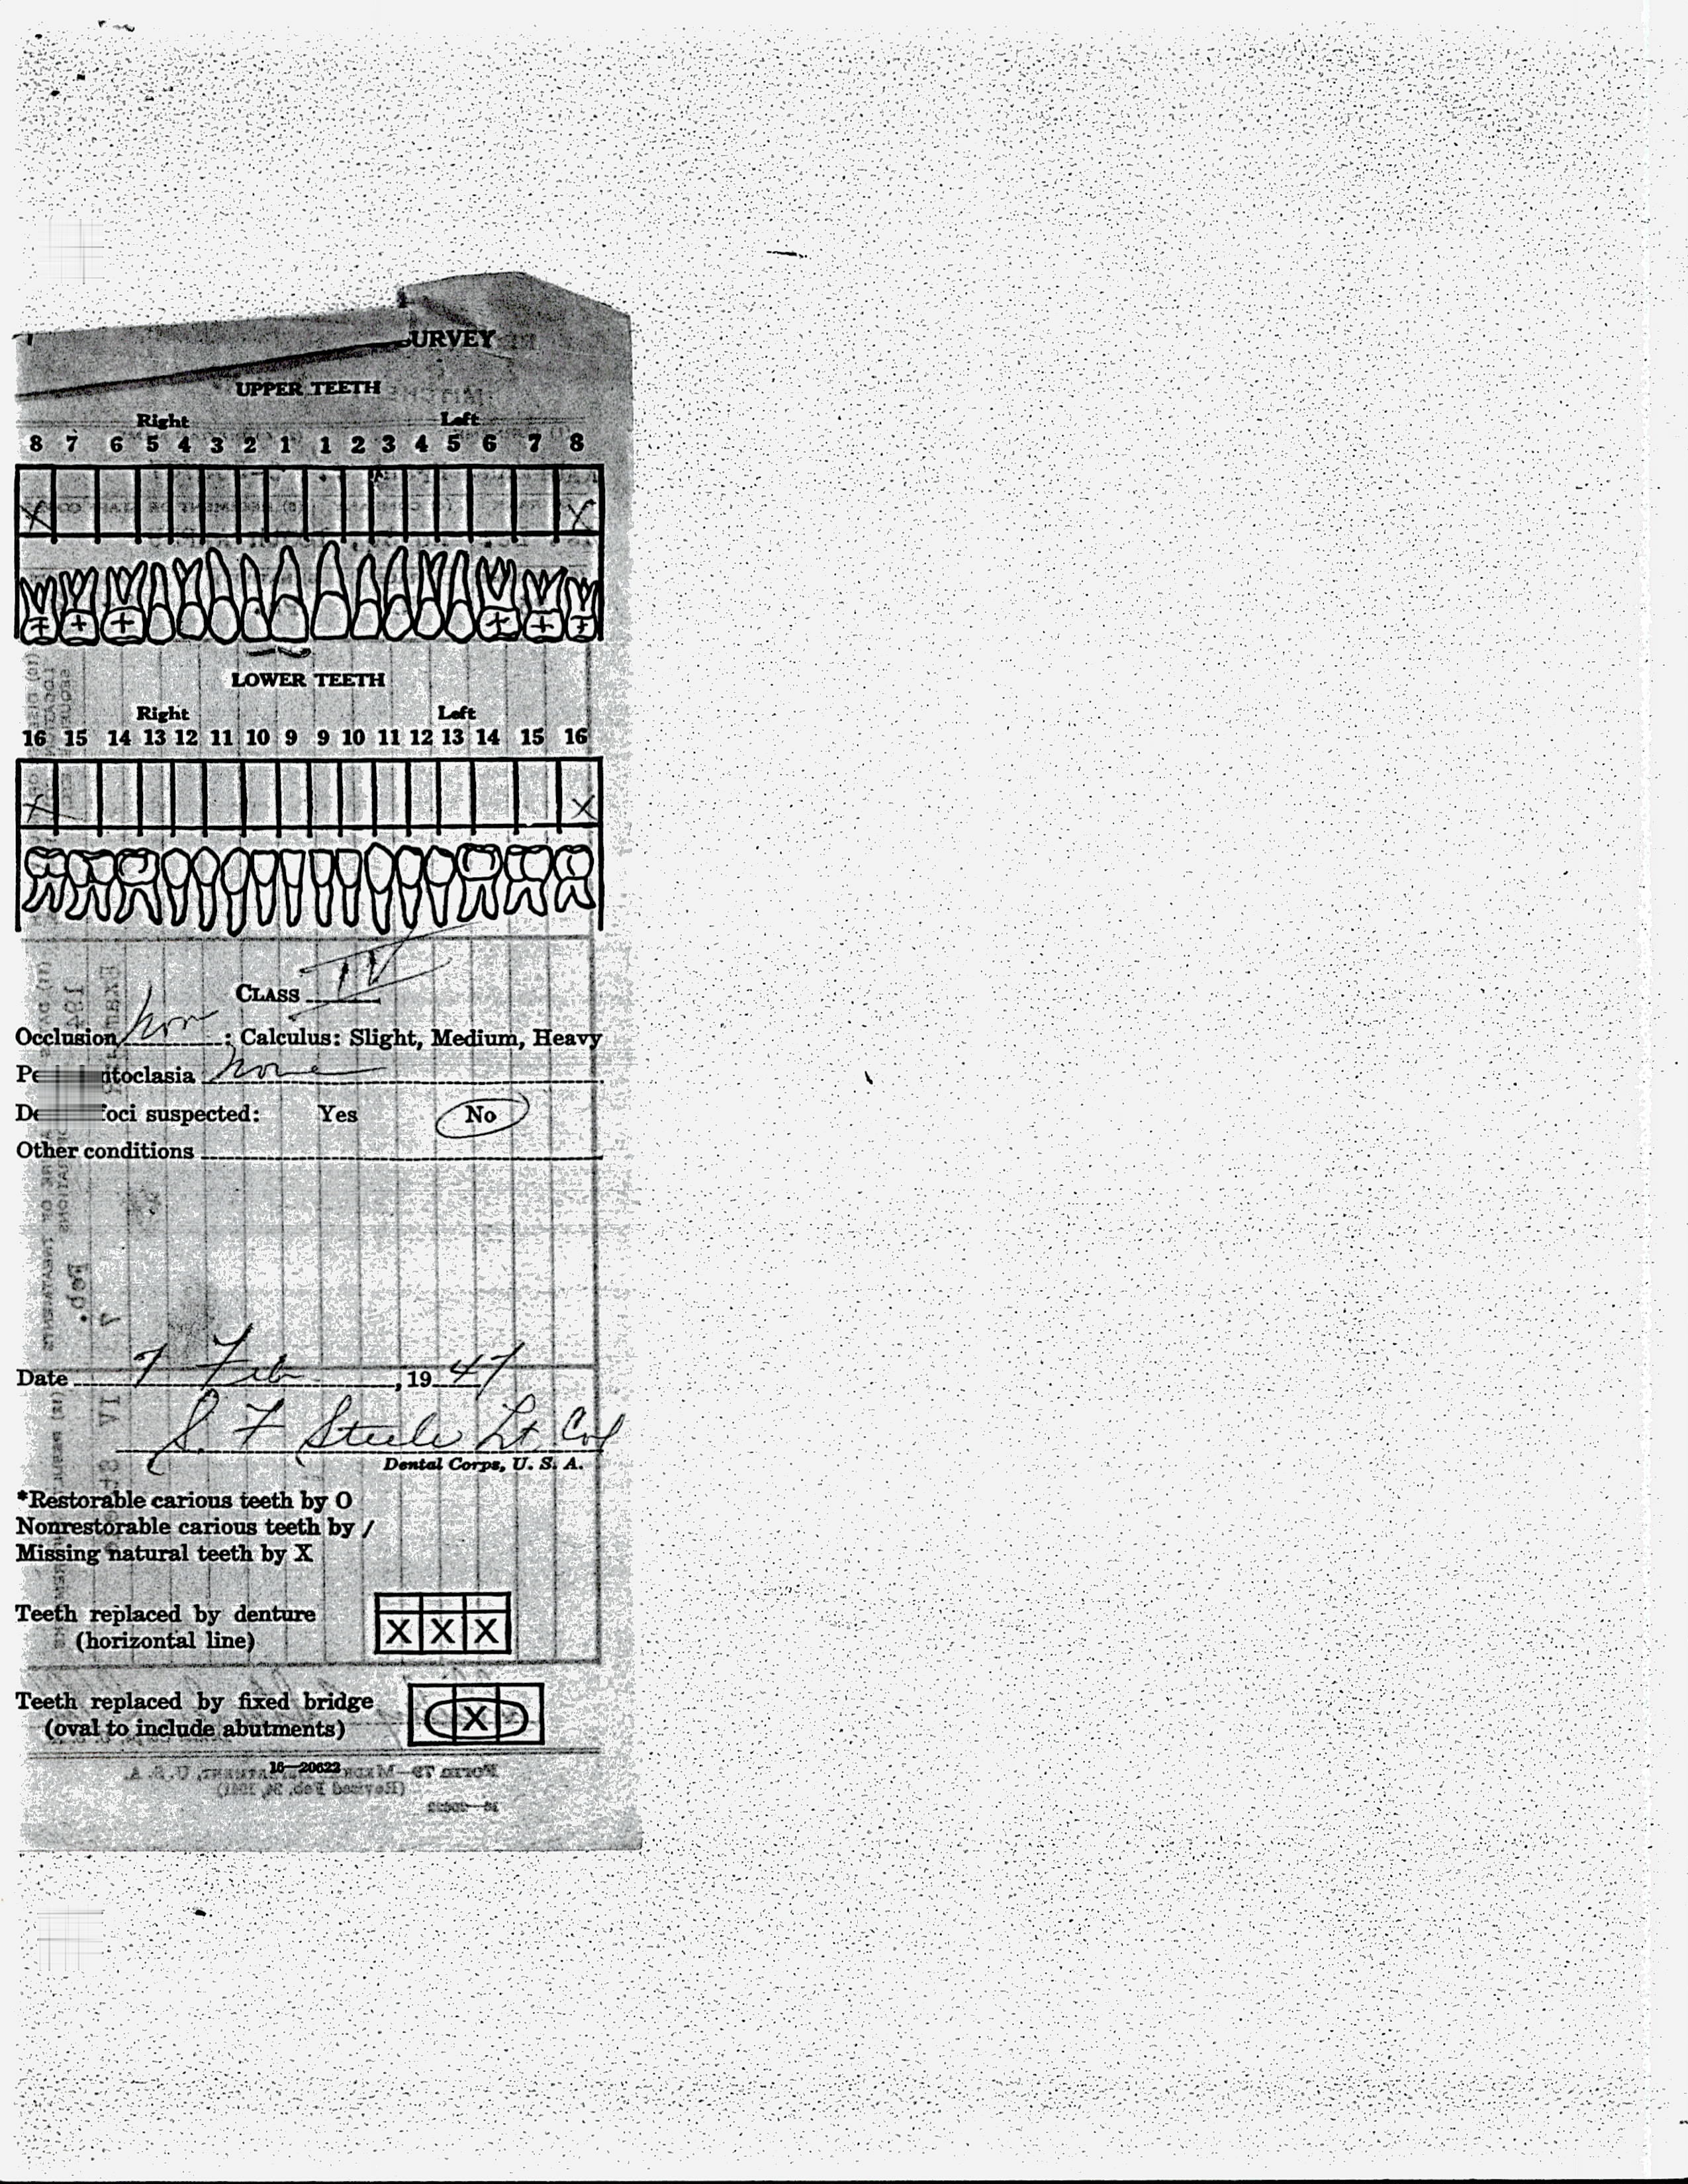 SURVEY
UPPER TEETH
Right Left
8 7 6 5 4 3 2 1 1 2 3 4 5 6 7 8
X X
LOWER TEETH
Right Left
16 15 14 13 12 11 10 9 9 10 11 12 13 14 15 16
X X
CLASS IV
Occlusion nor : Calculus: Slight, Medium, Heavy
none
foci suspected: Yes No
Other conditions
Date 7 Feb, 1947
S. F Steele Lt Col
Dental Corps, U. S. A.
*Restorable carious teeth by O
Nonrestorable carious teeth by /
Missing natural teeth by X
Teeth replaced by denture
(horizontal line)
X X X
Teeth replaced by fixed bridge
(oval to include abutments)
X
16—20622